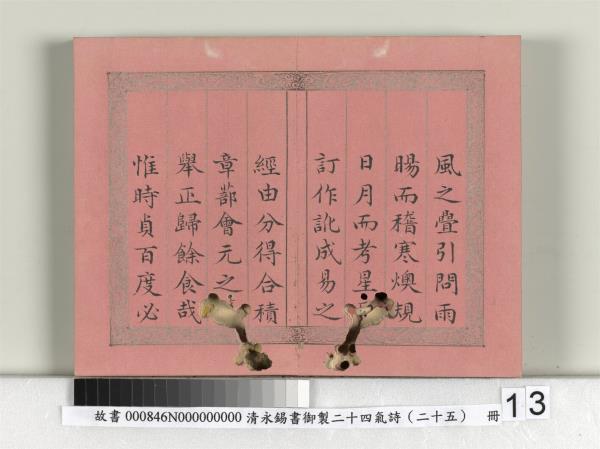 風之疊引問雨
暘而稽寒燠規
日月而考星
訂作訛成易之
經由分得合積
章蔀會元之
舉正歸餘食哉
惟時貞百度必
故書 000846N000000000 清永錫書御製二十四氣詩（二十五） 冊 13